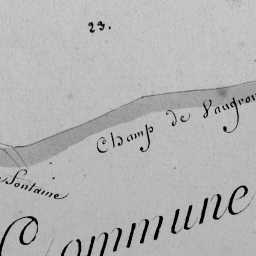 23.
Champ de Vaugrou
Fontaine
Commune